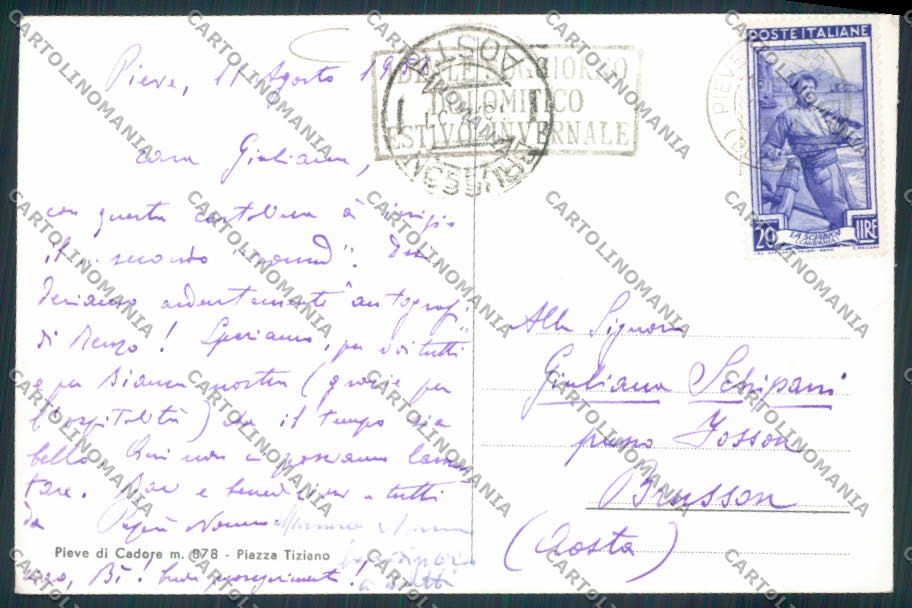 Pieve, 11 Agosto
cara Giuliana,
con questa cartolina
il secondo "round". De
sideriamo ardentemente "autografi"
di Renzo! Speriamo, per voi tutti
e per Bianca nostra (grazie per
l'ospitalità) che il tempo sia
bello. Qui non ci possiamo lamen
tare. Baci e benedizioni a tutti
da Papà Nonno
Pieve di Cadore m. 878 - Piazza Tiziano
a tutti
BELLE SOGGIORNO
DOLOMITICO
ESTIVO INVERNALE
AOSTA
BRUSSON
PIEVE
POSTE ITALIANE
LA SCIABICA
(CAMPANIA)
20 LIRE
Alla Signora
Giuliana Schipani
presso Josson
Brusson
(Aosta)
CARTOLINOMANIA